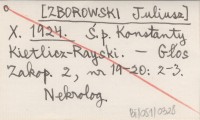 [ZBOROWSKI Juliusz]
X. 1924. Ś.p. Konstanty
Kietlicz-Rayski. — Głos
Zakop. 2, nr 19-20: 2-3.
Nekrolog.